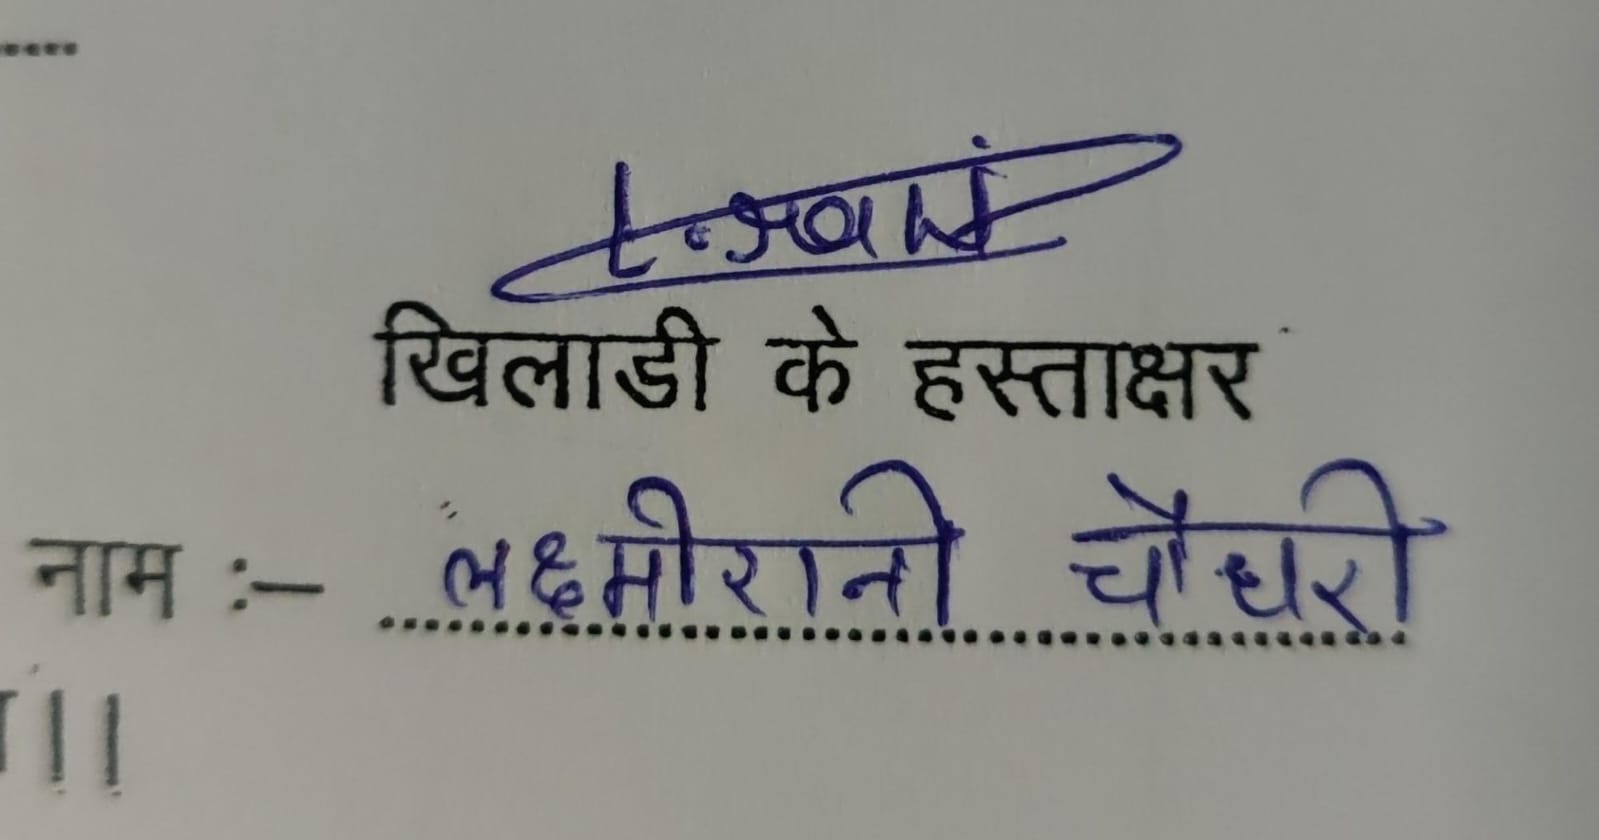 खिलाडी के हस्ताक्षर
नाम :- लक्ष्मीरानी चौधरी